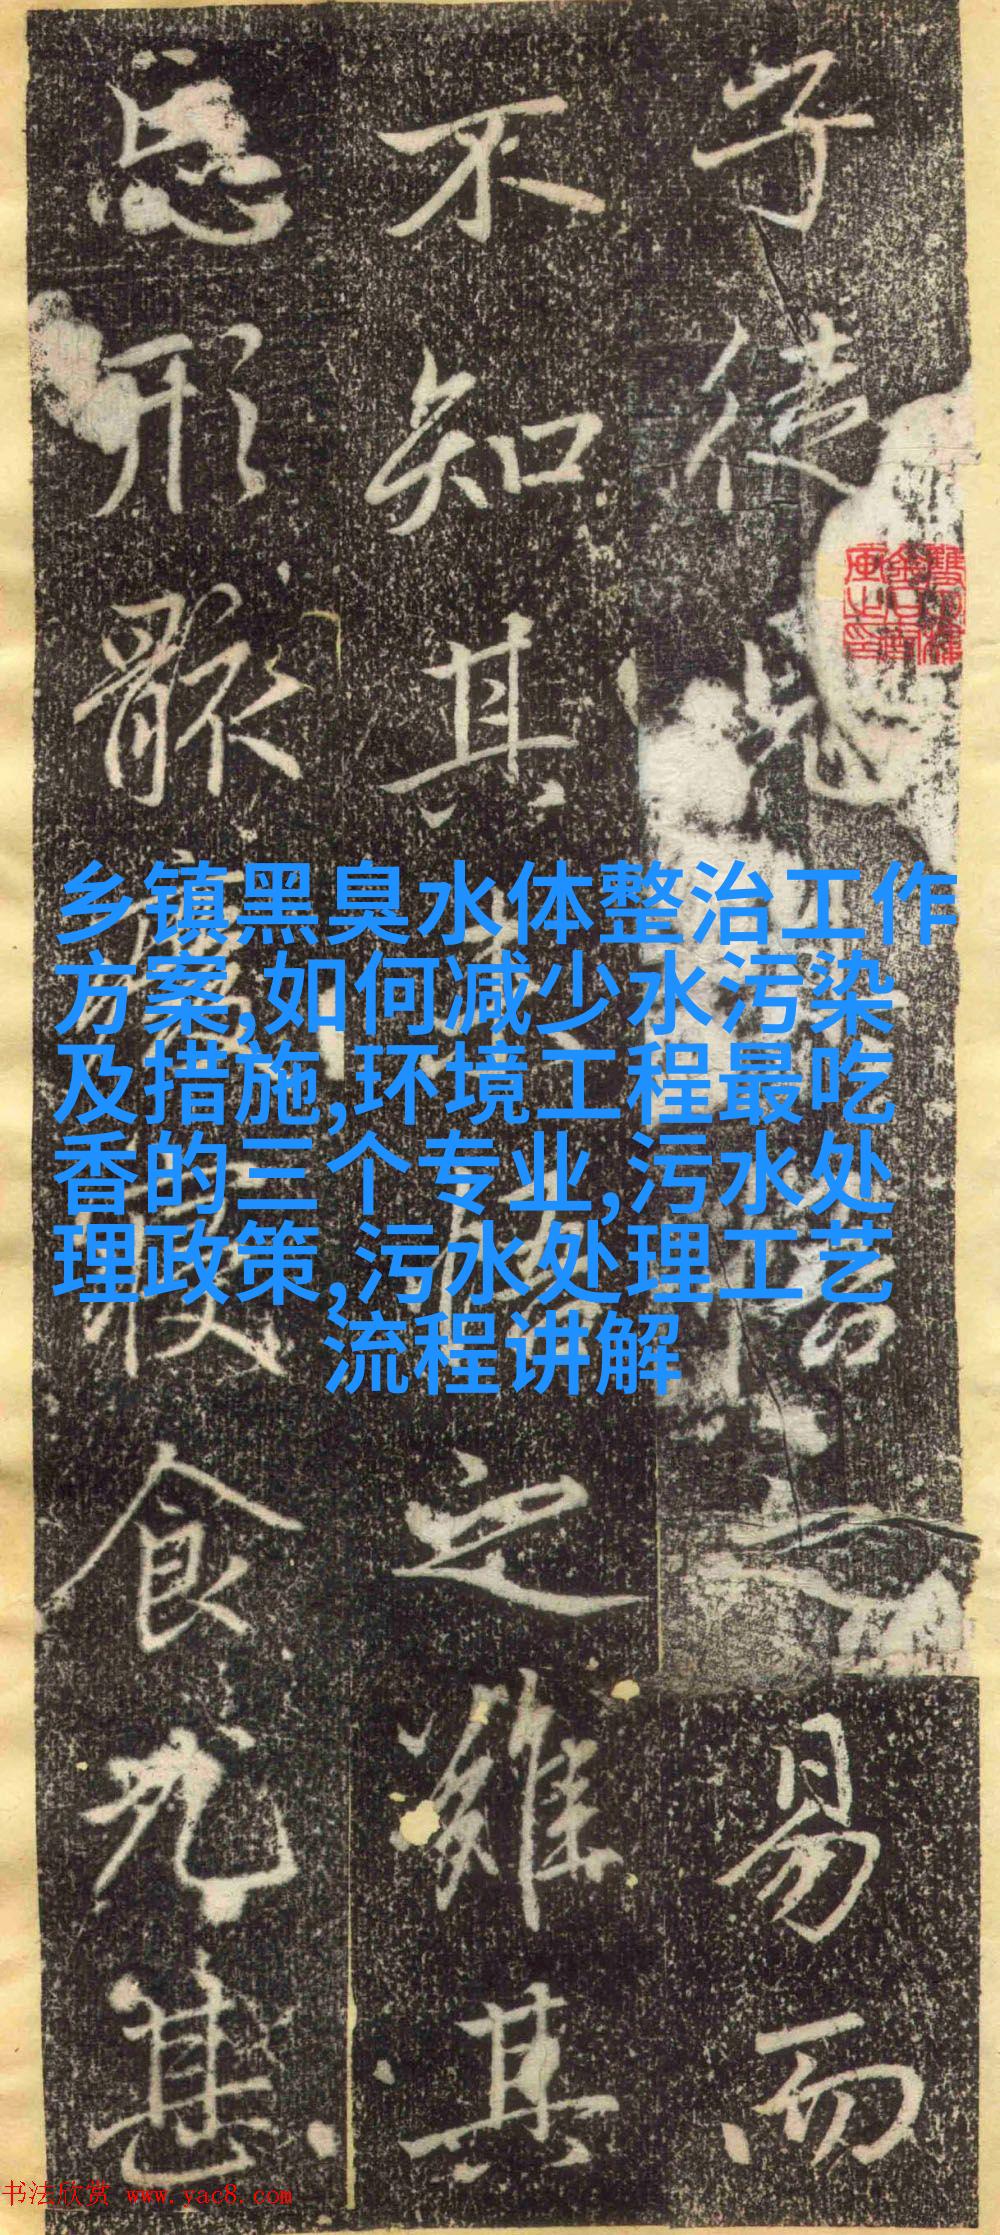 子徒見之易而
不知其之難其
忘形骸廢寢食
乡镇黑臭水体整治工作
方案,如何减少水污染
及措施,环境工程最吃
香的三个专业,污水处
理政策,污水处理工艺
流程讲解
书法欣赏 www.yac8.com